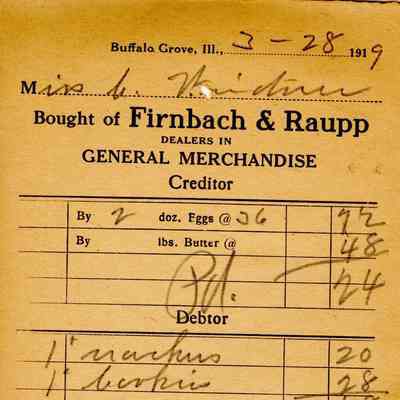 Buffalo Grove, Ill., 3-28 1919
Miss C.
Bought of Firnbach & Raupp
DEALERS IN
GENERAL MERCHANDISE
Creditor
By 2 doz. Eggs @ 36 72
By lbs. Butter @ 48
Pd. 24
Debtor
1 crackers 20
1 cookies 28